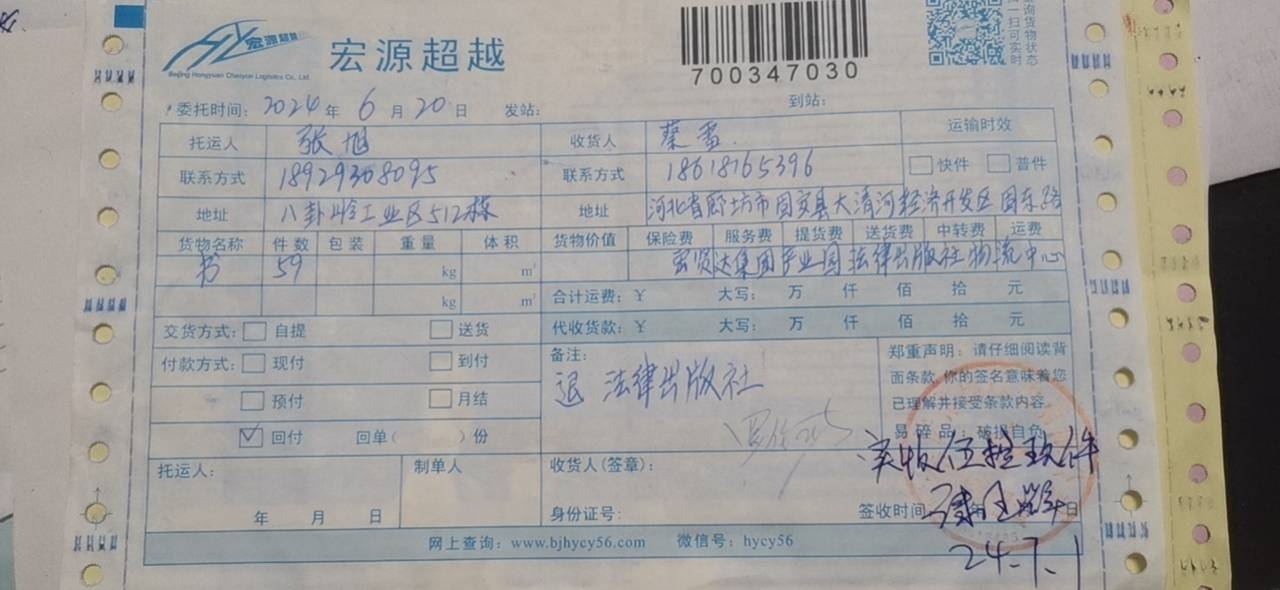 宏源超越
Beijing Hongyuan Chaoyue Logistics Co., Ltd.
宏源超越
700347030
扫一扫可实时
查询货物状态
委托时间: 2024 年 6 月 20 日 发站: 到站:
托运人 张旭 收货人 蔡雷 运输时效
联系方式 18929308095 联系方式 18618165396 快件 普件
地址 八卦岭工业区512栋 地址 河北省廊坊市固安县大清河经济开发区固东路
货物名称 件数 包装 重量 体积 货物价值 保险费 服务费 提货费 送货费 中转费 运费
书 59 kg m³ 宏贤达集团产业园 法律出版社物流中心
kg m³ 合计运费: ¥ 大写: 万 仟 佰 拾 元
交货方式: 自提 送货 代收货款: ¥ 大写: 万 仟 佰 拾 元
付款方式: 现付 到付
预付 月结
回付 回单( )份
备注:
退 法律出版社
郑重声明: 请仔细阅读背
面条款,你的签名意味着您
已理解并接受条款内容
易碎品: 破损自负
实收伍拾玖件
托运人: 制单人 收货人(签章):
年 月 日 身份证号: 签收时间 年 日
24.7.1
网上查询: www.bjhycy56.com 微信号: hycy56